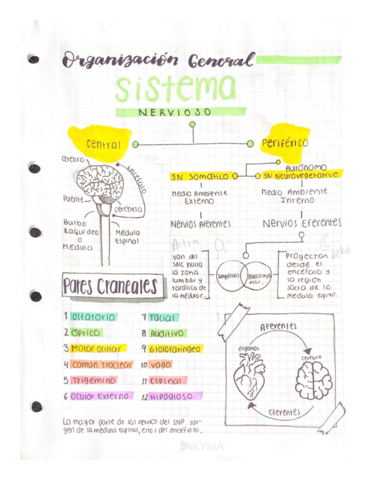 Organización General
Sistema
NERVIOSO
Central
Periférico
Cerebro
Encéfalo
Puente
Cerebelo
Bulbo
Raquídeo
o
Médula
Médula
Espinal
Autónomo
SN. Somático
SN. Neurovegetativo
Medio Ambiente
Externo
Medio Ambiente
Interno
Nervios Aferentes
Nervios Eferentes
van del
SNC hacia
la zona
lumbar y
la médula.
Simpático
Proyectan
desde el
encéfalo y
la región
sacra de la
médula espinal.
Pares Craneales
1 olfatorio
2 óptico
3 Motor ocular
4 común troclear
5 Trigémino
6 Ocular Externo
7 Facial
8 Auditivo
9 Glosofaríngeo
10 vago
11 Espinal
12 Hipogloso
AFERENTES
órganos
cerebro
Eferentes
La mayor parte de los nervios del SNP sur-
gen de la médula espinal,